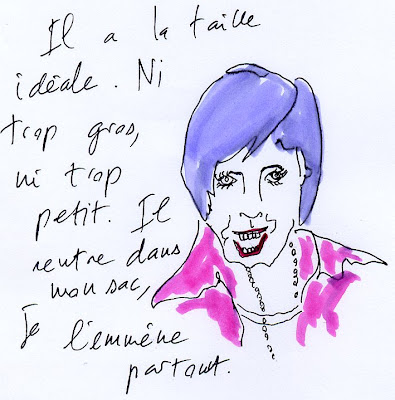 Il a la taille
idéale. Ni
trop gros,
ni trop
petit. Il
rentre dans
mon sac,
Je l'emmène
partout.